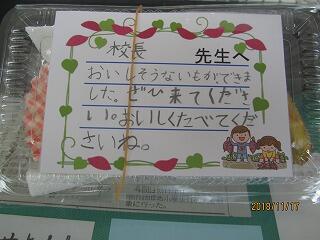 校長 先生へ
おいしそうないもができま
した。ぜひ来てくださ
い。おいしくたべてくだ
さいね。
2018/11/17